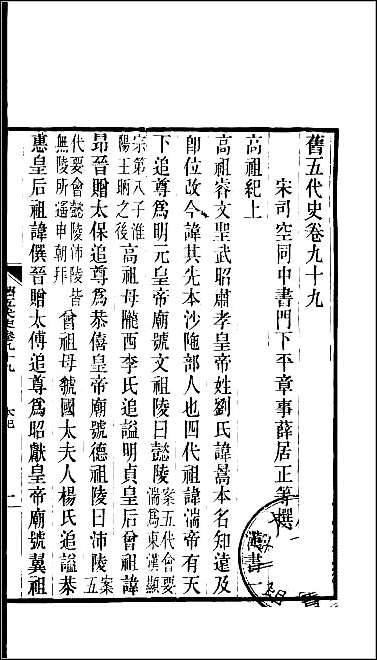 舊五代史卷九十九
宋司空同中書門下平章事薛居正等撰
高祖紀上 漢書一
高祖睿文聖武昭肅孝皇帝姓劉氏諱暠本名知遠及
卽位改今諱其先本沙陁部人也四代祖諱湍帝有天
下追尊爲明元皇帝廟號文祖陵曰懿陵案五代會要湍爲東漢顯
宗第八子淮陽王昞之後高祖母隴西李氏追謚明貞皇后曾祖諱
昂晉贈太保追尊爲恭僖皇帝廟號德祖陵曰沛陵案五
代要會懿陵沛陵皆無陵所遥申朝拜曾祖母虢國太夫人楊氏追謚恭
惠皇后祖諱僎晉贈太傅追尊爲昭獻皇帝廟號翼祖
舊五代史卷九十九 一